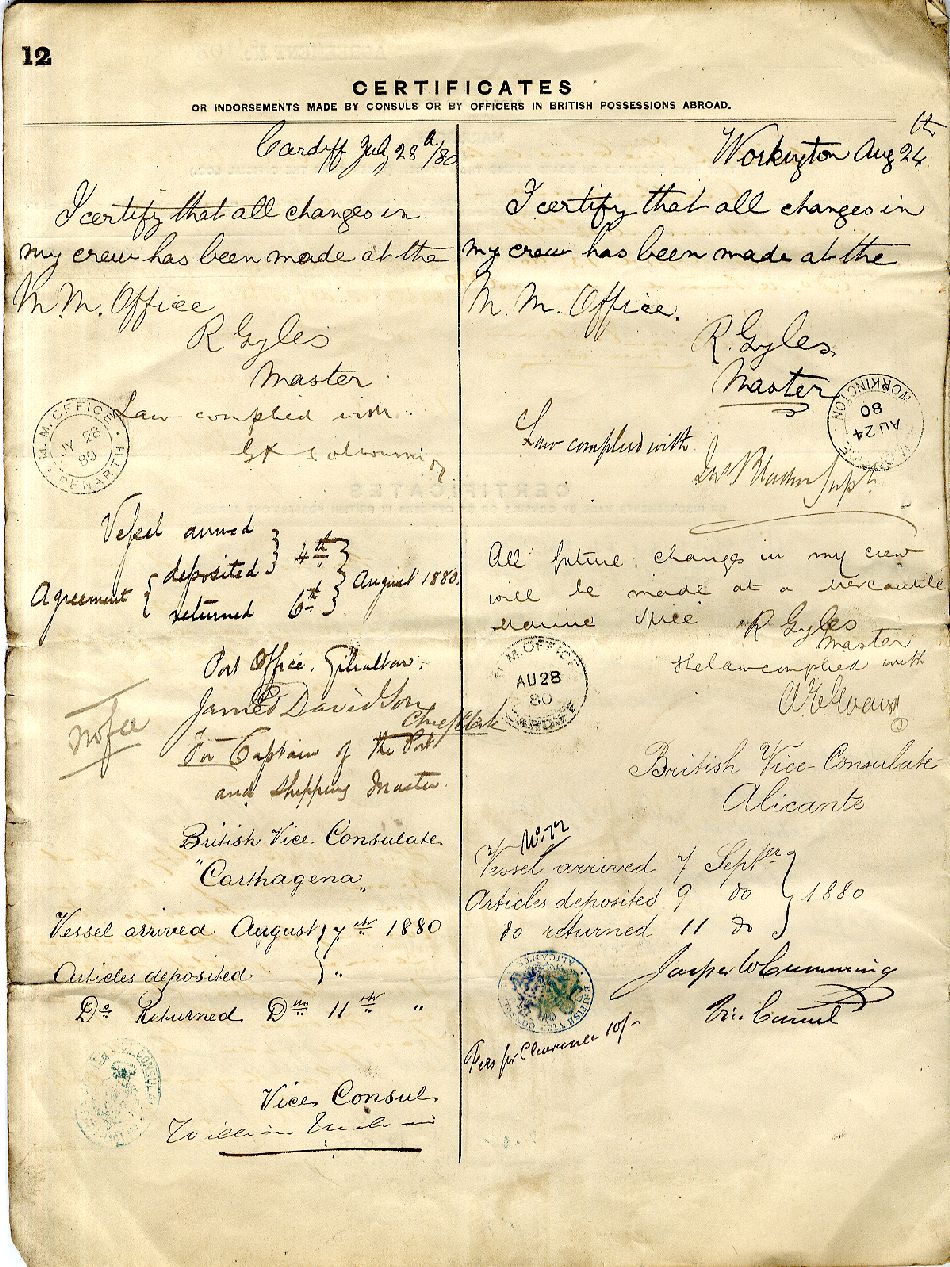 12
CERTIFICATES
OR INDORSEMENTS MADE BY CONSULS OR BY OFFICERS IN BRITISH POSSESSIONS ABROAD.
Cardiff July 28th/80
I certify that all changes in
my crew has been made at the
M. M. Office
R Gyles
Master
Law complied with
M. M. OFFICE
JY 28
80
PENARTH
Vessel arrived
Agreement { deposited } 4th } August 1880.
returned 6th
Port Office. Gibraltar.
James Davidson
Chief Clerk
no fee
For Captain of the Port
and Shipping Master.
British Vice Consulate
"Carthagena"
Vessel arrived August 7th 1880
Articles deposited "
Do Returned Do 11th "
Vice Consul
William
Workington Aug 24th
I certify that all changes in
my crew has been made at the
M. M. Office.
R. Gyles.
Master
WORKINGTON
AU 24
80
Law complied with.
Supt.
All future changes in my crew
will be made at a Mercantile
Marine Office R Gyles
Master
The law complied with
M. M. OFFICE
AU 28
80
British Vice-Consulate
Alicante
No. 72
Vessel arrived 7 Septer } 1880
Articles deposited 9 do
do returned 11 do
Jasper W Cumming
Vice Consul
Fees for Clearance 10/-